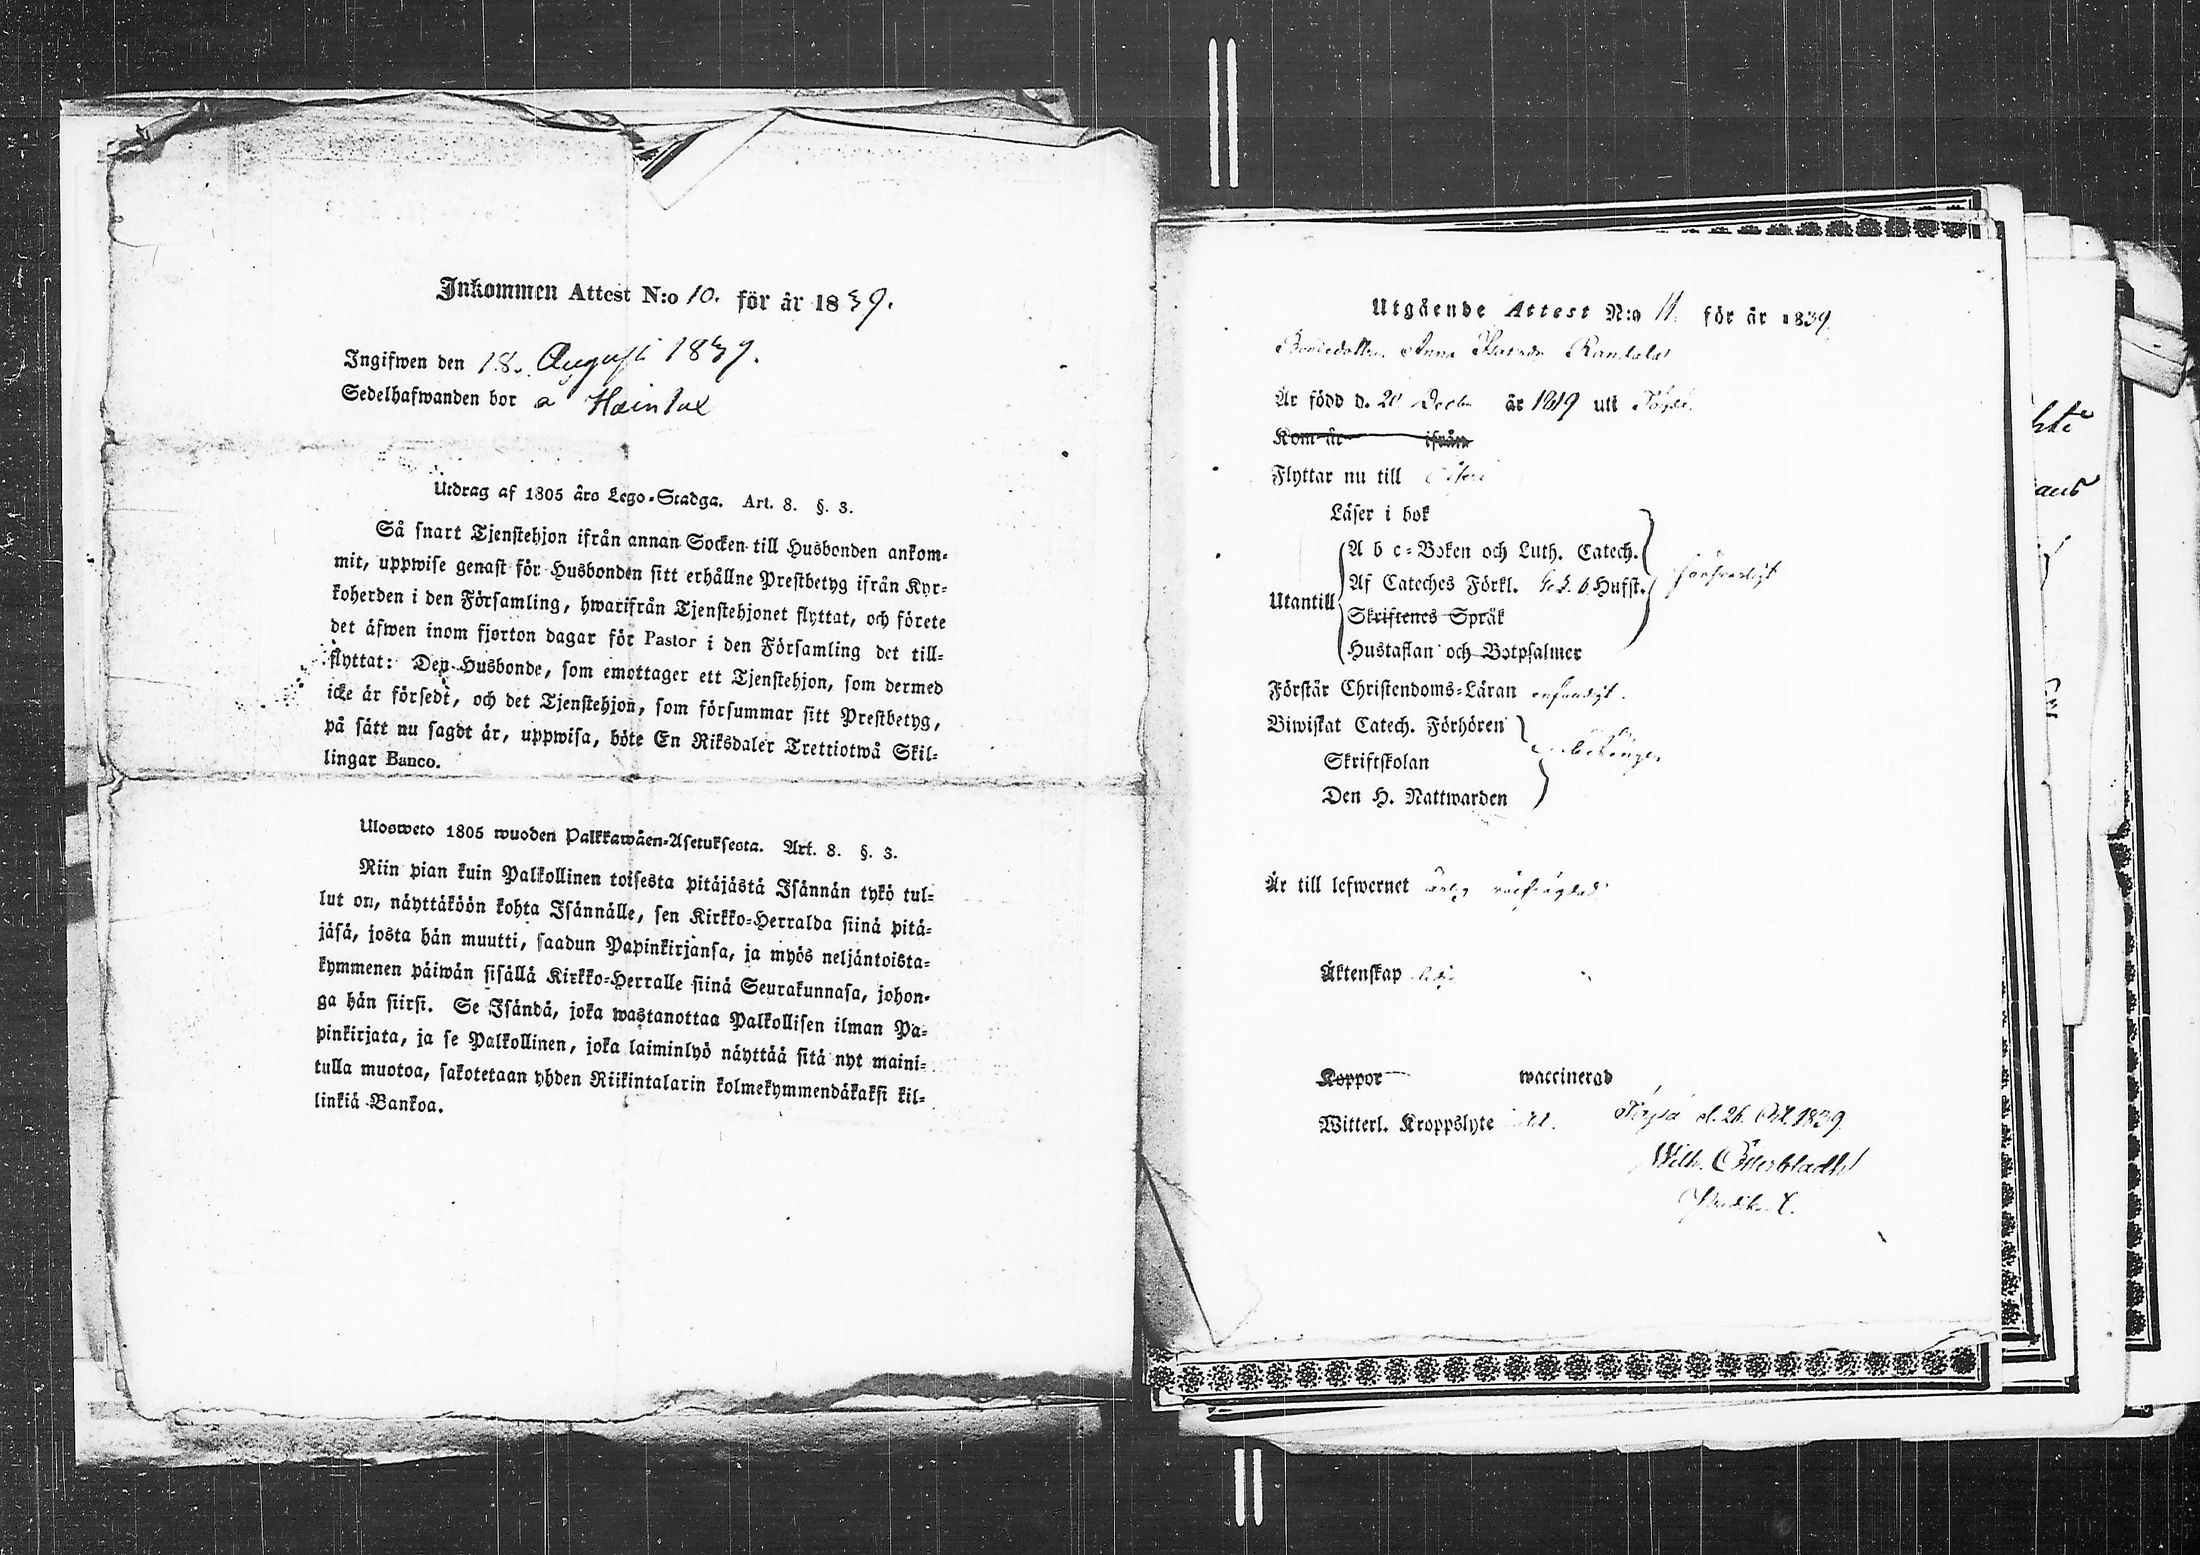 Inkommen Attest N:o 10. för år 1839.
Ingifwen den 18. Augusti 1839.
Sedelhafwanden bor a
Utdrag af 1805 års Lego-Stadga. Art. 8. §. 3.
Så snart Tjenstehjon ifrån annan Socken till Husbonden ankom-
mit, uppwise genast för Husbonden sitt erhållne Prestbetyg ifrån Kyr-
koherden i den Församling, hwarifrån Tjenstehjonet flyttat, och förete
det äfwen inom fjorton dagar för Pastor i den Församling det till-
flyttat: Den Husbonde, som emottager ett Tjenstehjon, som dermed
icke är försedt, och det Tjenstehjon, som försummar sitt Prestbetyg,
på sätt nu sagdt är, uppwisa, böte En Riksdaler Trettiotwå Skil-
lingar Banco.
Ulosweto 1805 wuoden Palkkawäen-Asetuksesta. Art. 8. §. 3.
Niin pian kuin Palkollinen toisesta pitäjästä Isännän tykö tul-
lut on, näyttäköön kohta Isännälle, sen Kirkko-Herralda siinä pitä-
jäsä, josta hän muutti, saadun Papinkirjansa, ja myös neljäntoista-
kymmenen päiwän sisällä Kirkko-Herralle siinä Seurakunnasa, johon-
ga hän siirsi. Se Isändä, joka wastanottaa Palkollisen ilman Pa-
pinkirjata, ja se Palkollinen, joka laiminlyö näyttää sitä nyt maini-
tulla muotoa, sakotetaan yhden Riikintalarin kolmekymmendäkaksi kil-
linkiä Bankoa.
Utgående Attest N:o 11. för år 1839.
Anna
Är född d. 20 Decbr år 1819 uti
Kom år ifrån
Flyttar nu till
Läser i bok
A b c-Boken och Luth. Catech.
Af Cateches Förkl. Hufst.
Utantill
Skriftenes Språk
Hustaflan och Botpsalmer
försvarligt
Förstår Christendoms-Läran
Biwistat Catech. Förhören
Skriftskolan
Den H. Nattwarden
Är till lefwernet ärlig
Äktenskap ledig
Koppor waccinerad
Witterl. Kroppslyte
d. 26. Oct. 1839.
Wilh. Österbladh
Predikant.
hte